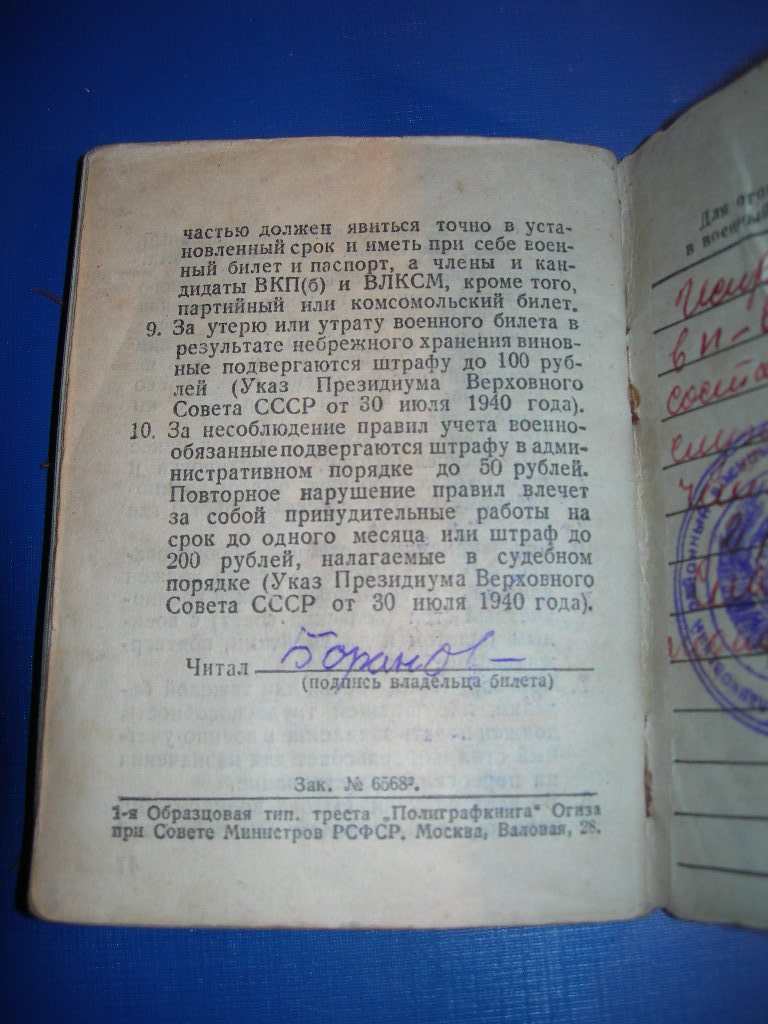 частью должен явиться точно в уста-
новленный срок и иметь при себе воен-
ный билет и паспорт, а члены и кан-
дидаты ВКП(б) и ВЛКСМ, кроме того,
партийный или комсомольский билет.
9. За утерю или утрату военного билета в
результате небрежного хранения винов-
ные подвергаются штрафу до 100 руб-
лей (Указ Президиума Верховного
Совета СССР от 30 июля 1940 года).
10. За несоблюдение правил учета военно-
обязанные подвергаются штрафу в адми-
нистративном порядке до 50 рублей.
Повторное нарушение правил влечет
за собой принудительные работы на
срок до одного месяца или штраф до
200 рублей, налагаемые в судебном
порядке (Указ Президиума Верховного
Совета СССР от 30 июля 1940 года).
Читал
(подпись владельца билета)
Зак. № 6568².
1-я Образцовая тип. треста „Полиграфкнига“ Огиза
при Совете Министров РСФСР. Москва, Валовая, 28.
Для
в военный